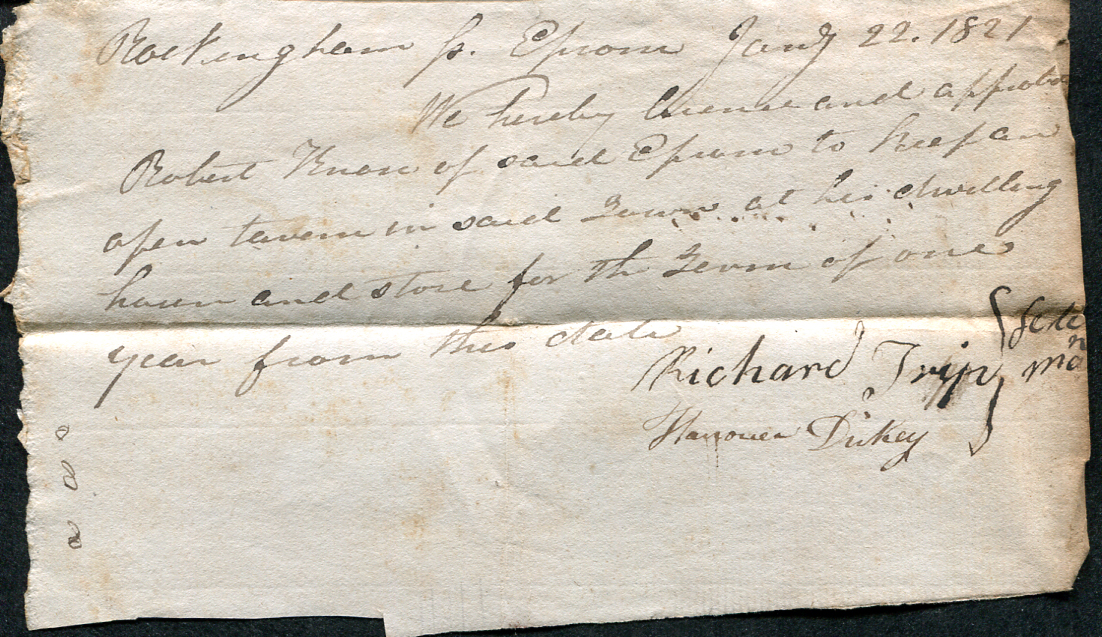 Rockingham ss. Epsom Jany 22. 1821
We hereby licence and approbate
Robert Knox of said Epsom to keep an
open tavern in said Town at his dwelling
house and store for the Term of one
year from this date
Richard Tripp } Select
Hanover Dickey } men